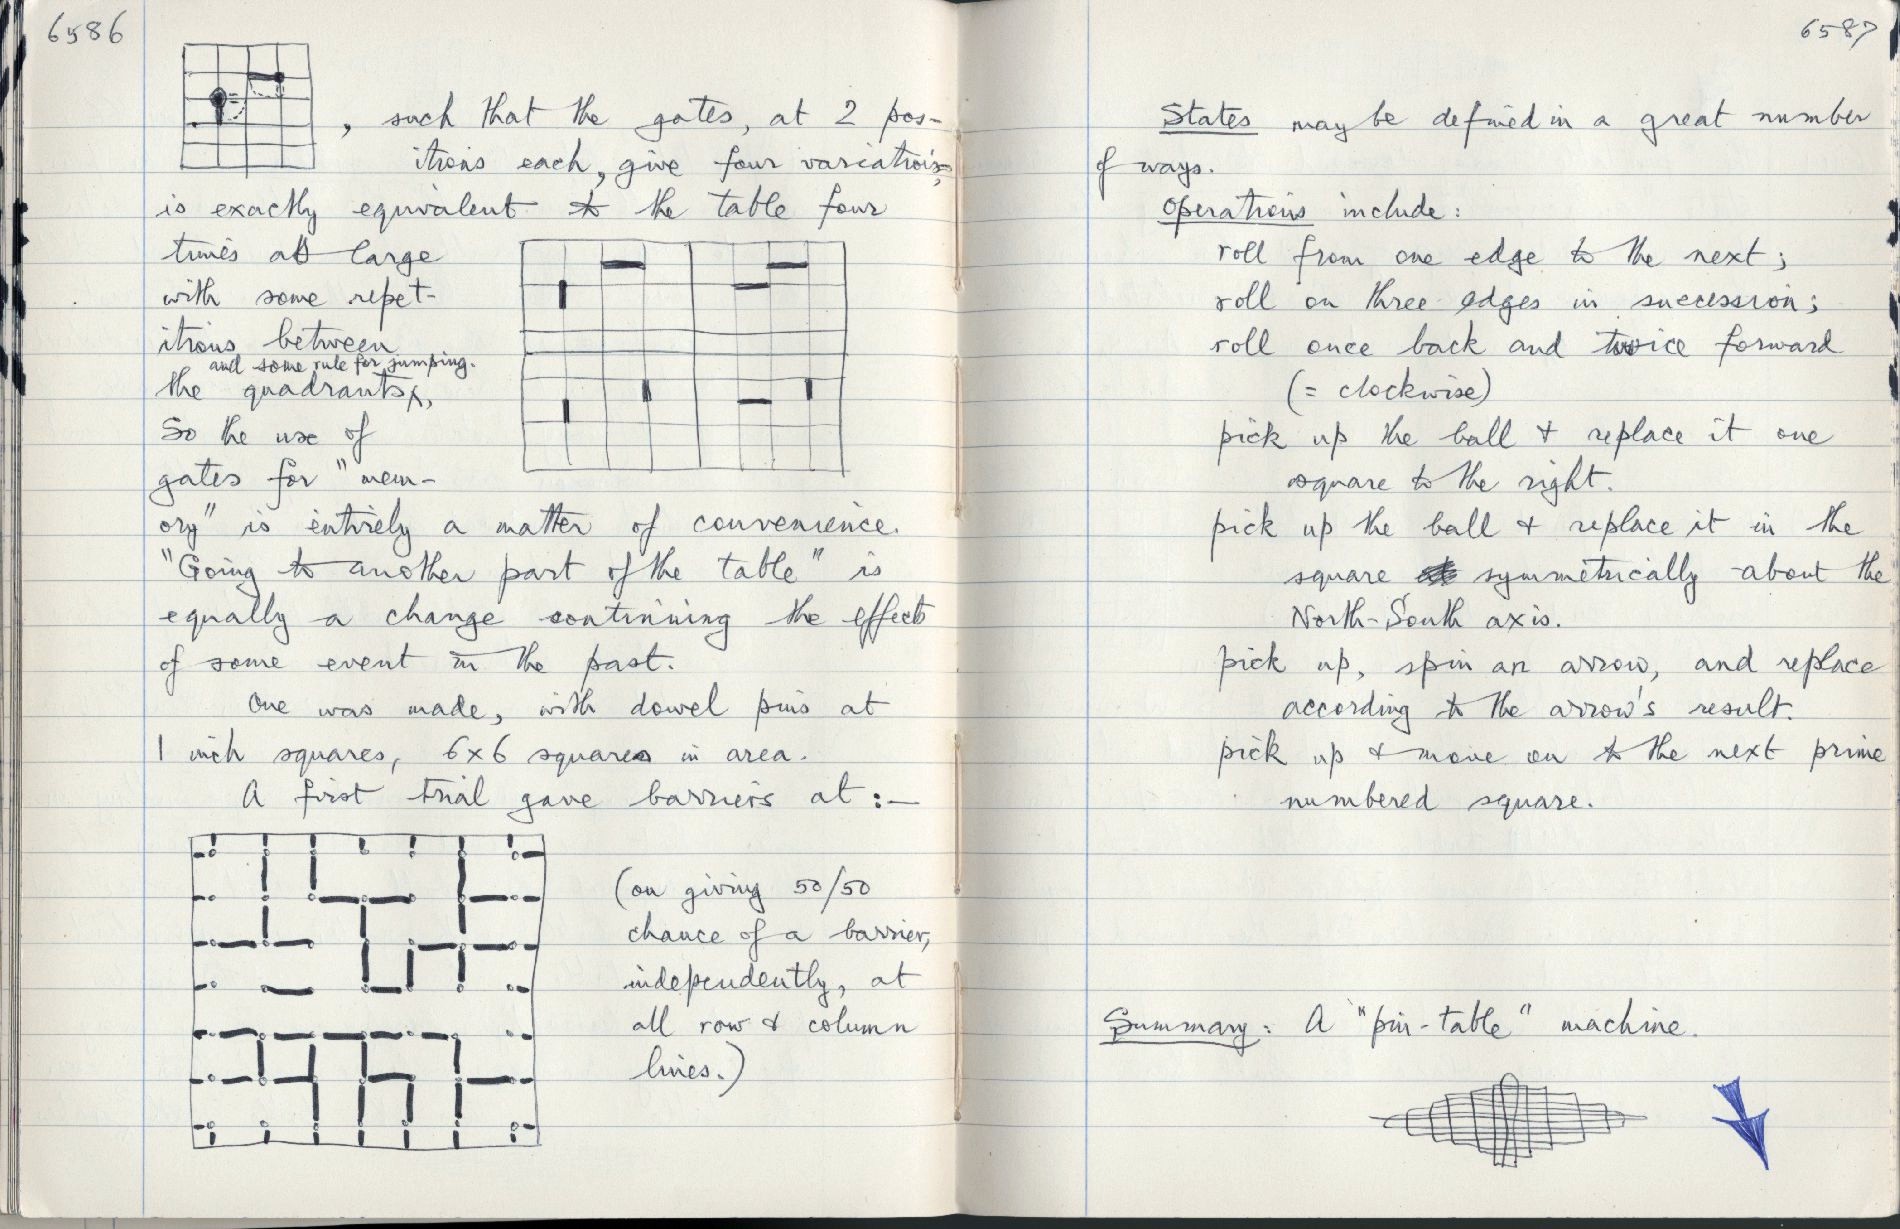 6586
, such that the gates, at 2 pos-
itions each, give four variations,
is exactly equivalent to the table four
times as large
with some repet-
itions between
and some rule for jumping.
the quadrants,
So the use of
gates for "mem-
ory" is entirely a matter of convenience.
"Going to another part of the table" is
equally a change continuing the effects
of some event in the past.
One was made, with dowel pins at
1 inch squares, 6x6 squares in area.
A first trial gave barriers at :—
(on giving 50/50
chance of a barrier,
independently, at
all row & column
lines.)
6587
States may be defined in a great number
of ways.
Operations include:
roll from one edge to the next;
roll on three edges in succession;
roll once back and twice forward
(= clockwise)
pick up the ball & replace it one
square to the right.
pick up the ball & replace it in the
square symmetrically about the
North-South axis.
pick up, spin an arrow, and replace
according to the arrow's result.
pick up & move on to the next prime
numbered square.
Summary: A "pin-table" machine.